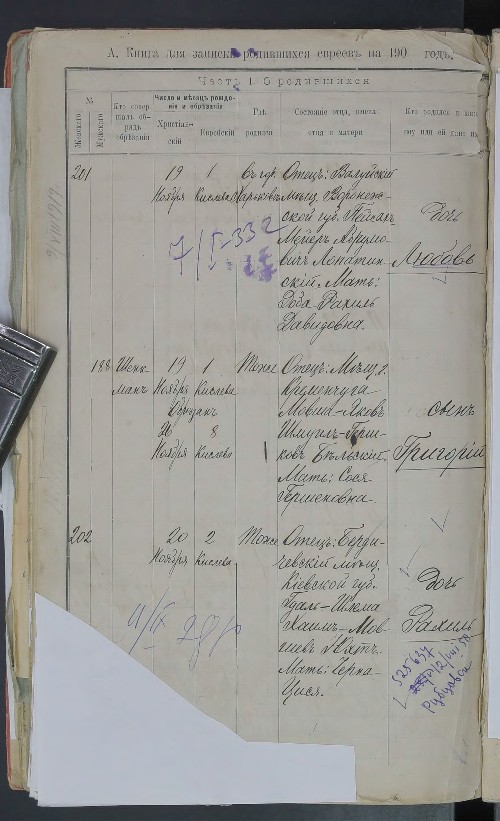 А. Книга для записи родившихся евреевъ на 190 годъ.
Часть I. О родившихся
№
Женскаго
Мужскаго
Кто совер
шалъ об-
рядъ
обрѣзанія
Число и мѣсяцъ рожде-
нія и обрѣзанія
Христіан-
скій
Еврейскій
Гдѣ
родился
Состояніе отца, имена
отца и матери
Кто родился и
ему или ей дано
201
19
Ноября
1
Кислева
Въ гор.
Харьковѣ
Отецъ: Валуйскій
мѣщ. Воронеж-
ской губ. Пейсахъ-
Мейеръ Абрамо-
вичъ Лопатин-
скій. Мать:
Рахиль
Давидовна.
Дочь
Любовь
7/I-332
188
Шенк-
манъ
19
Ноября
1
Кислева
Обрѣзанъ
26
Ноября
8
Кислева
Тоже
Отецъ: Мѣщ. г.
Кременчуга
Мовша-Яковъ
Шмуил-Герш-
ковъ Бѣльский.
Мать: Сося
Гершеновна
сынъ
Григорій
202
20
Ноября
2
Кислева
Тоже
Отецъ: Берди-
чевскій мѣщ.
Кіевской губ.
Хаимъ-Мов-
шевъ
Мать: Черна-
Цися.
Дочь
Рахиль
525637